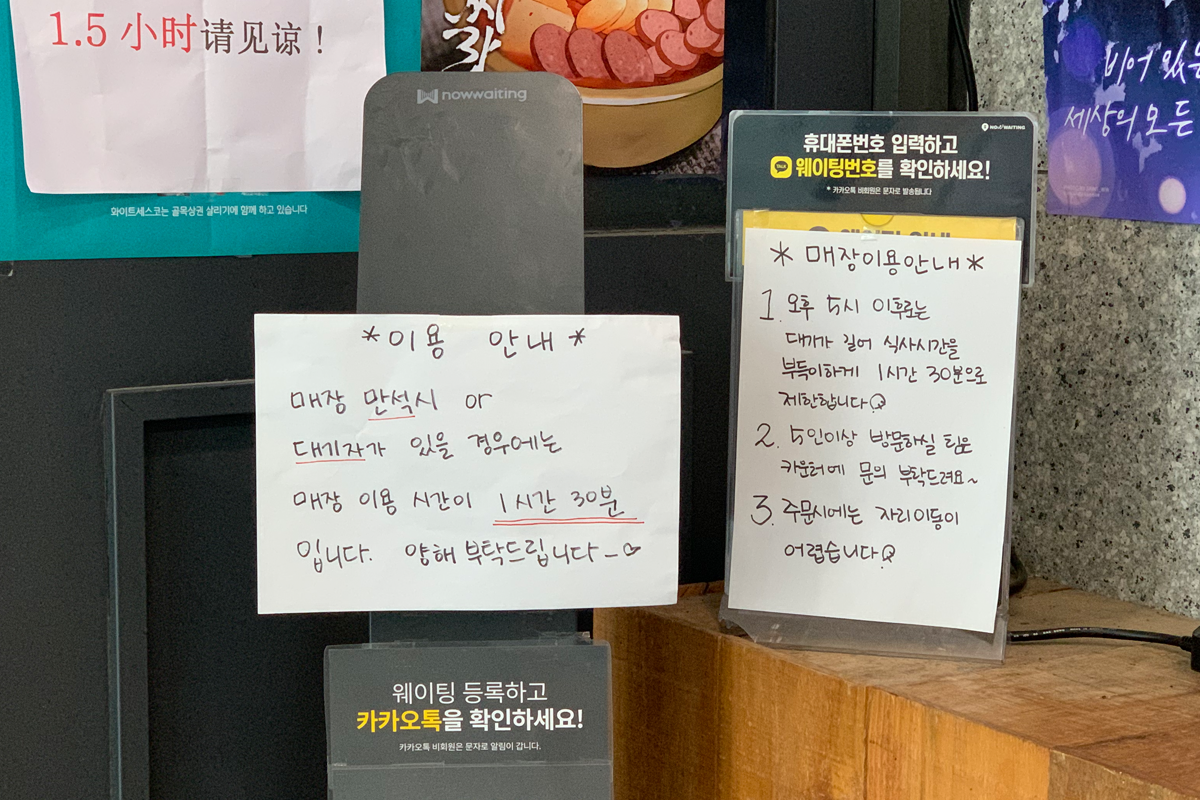 1.5 小时请见谅！
화이트세스코는 골목상권 살리기에 함께 하고 있습니다
찌라
nowwaiting
* 이용 안내 *
매장 만석시 or
대기자가 있을 경우에는
매장 이용 시간이 1시간 30분
입니다. 양해 부탁드립니다~
웨이팅 등록하고
카카오톡을 확인하세요!
카카오톡 비회원은 문자로 알림이 갑니다.
NOWWAITING
휴대폰번호 입력하고
TALK 웨이팅번호를 확인하세요!
* 카카오톡 비회원은 문자로 발송됩니다
* 매장이용안내 *
1. 오후 5시 이후로는
대기가 길어 식사시간을
부득이하게 1시간 30분으로
제한합니다
2. 5인이상 방문하실 팀은
카운터에 문의 부탁드려요~
3. 주문시에는 자리이동이
어렵습니다
비어 있는
세상의 모든